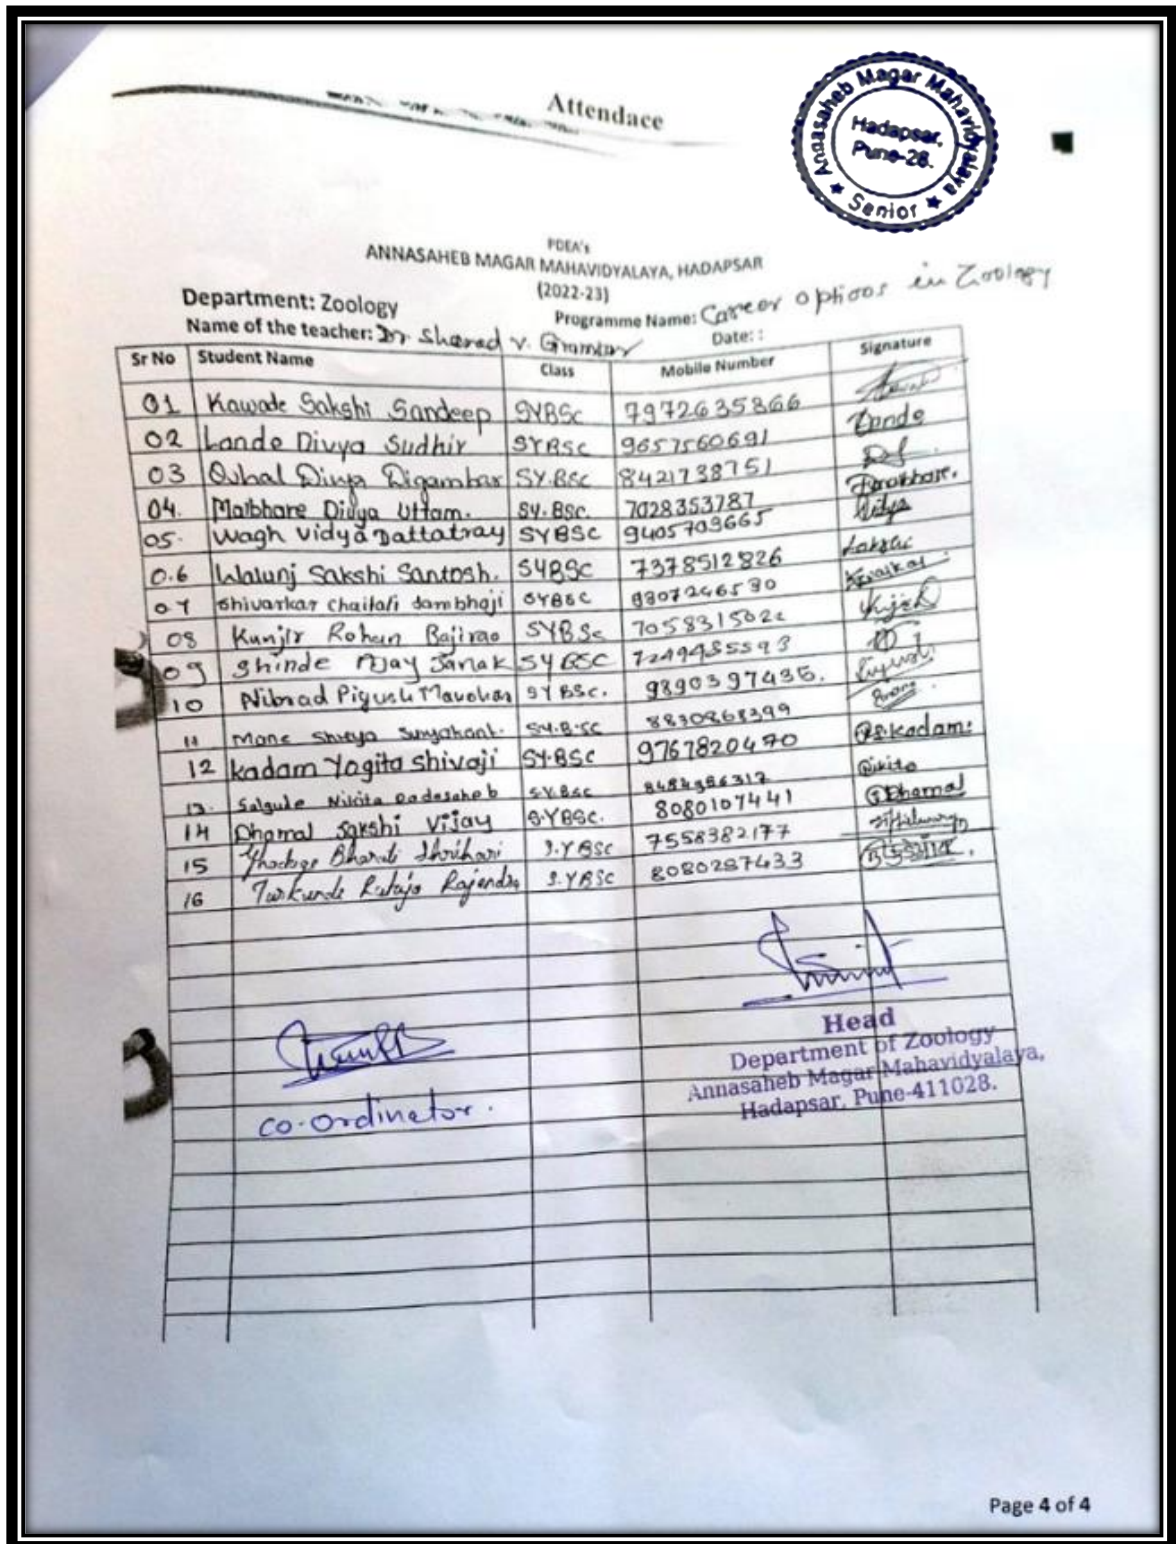 Attendace
Annasaheb Magar Mahavidyalaya
Hadapsar,
Pune-28.
★ Senior ★
PDEA's
ANNASAHEB MAGAR MAHAVIDYALAYA, HADAPSAR
(2022-23)
Department: Zoology Programme Name: Career options in Zoology
Name of the teacher: Dr Sharad v. Date: :
Sr No Student Name Class Mobile Number Signature
01 Kawade Sakshi Sandeep SYBSc 7972635866
02 Lande Divya Sudhir SYBSC 9657560691 Lande
03 Divya Digambar SY.BSC 8421738751
04. Malbhare Divya Uttam. SY. BSC. 7028353787
05. Wagh Vidya Dattatray SYBSC 9405709665 Vidya
0.6 Walunj Sakshi Santosh. SYBSC 7378512826
07 Shivarkar Chaitali Sambhaji SYBSC
08 Kunjir Rohan Bajirao SYBSc
09 Shinde Janak SYBSC
10 Nibrad Piyush SYBSc. 9890397435.
11 Mane Shreya SY.B.SC 8830868399
12 Kadam Yogita Shivaji SY.BSC 9767820470
13. Nikita Dadasaheb S.Y.BSC
14 Dhamal Sakshi Vijay S.YBSC. 8080107441 Dhamal
15 Bharati Shrihari S.YBSC 7558382177
16 Rajendra S.YBSC 8080287433
Head
Department of Zoology
Annasaheb Magar Mahavidyalaya,
Hadapsar, Pune-411028.
co-ordinator.
Page 4 of 4